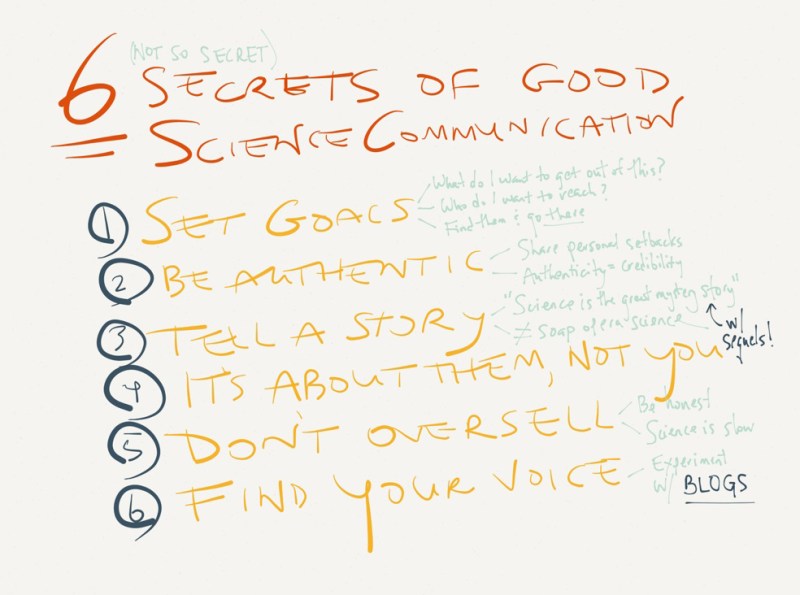 (NOT SO SECRET)
6 SECRETS OF GOOD
SCIENCE COMMUNICATION
1 SET GOALS
What do I want to get out of this?
Who do I want to reach?
Find them & go there
2 BE AUTHENTIC
Share personal setbacks
Authenticity = Credibility
3 TELL A STORY
"Science is the great mystery story"
≠ soap opera-science
w/
sequels!
4 IT'S ABOUT THEM, NOT YOU
5 DON'T OVERSELL
Be honest
Science is slow
6 FIND YOUR VOICE
Experiment
w/ BLOGS